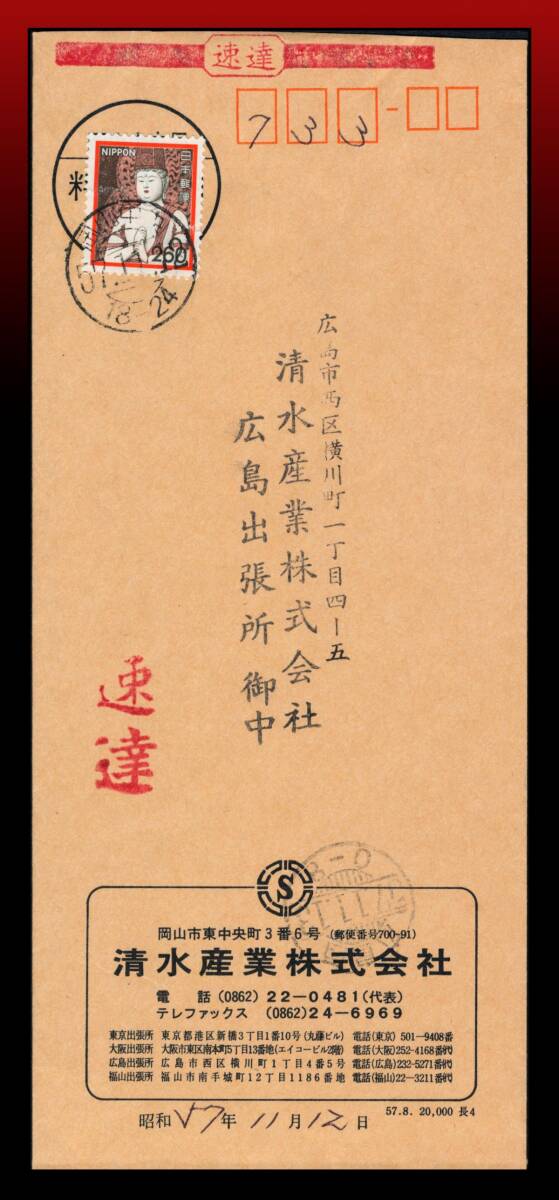 速達
733
NIPPON
日本郵便
260
料
57.11.12
18-24
広島市西区横川町一丁目四ー五
清水産業株式会社
広島出張所 御中
速達
8-0
S
岡山市東中央町3番6号 (郵便番号700-91)
清水産業株式会社
電 話 (0862) 22-0481(代表)
テレファックス (0862)24-6969
東京出張所 東京都港区新橋3丁目1番10号(丸藤ビル) 電話(東京) 501-9408番
大阪出張所 大阪市東区南本町5丁目13番地(エイコービル2階) 電話(大阪)252-4168番代
広島出張所 広島市西区横川町1丁目4番5号 電話(広島)232-5271番代
福山出張所 福山市南手城町12丁目1186番地 電話(福山)22-3211番代
昭和57年11月12日
57.8. 20,000 長4